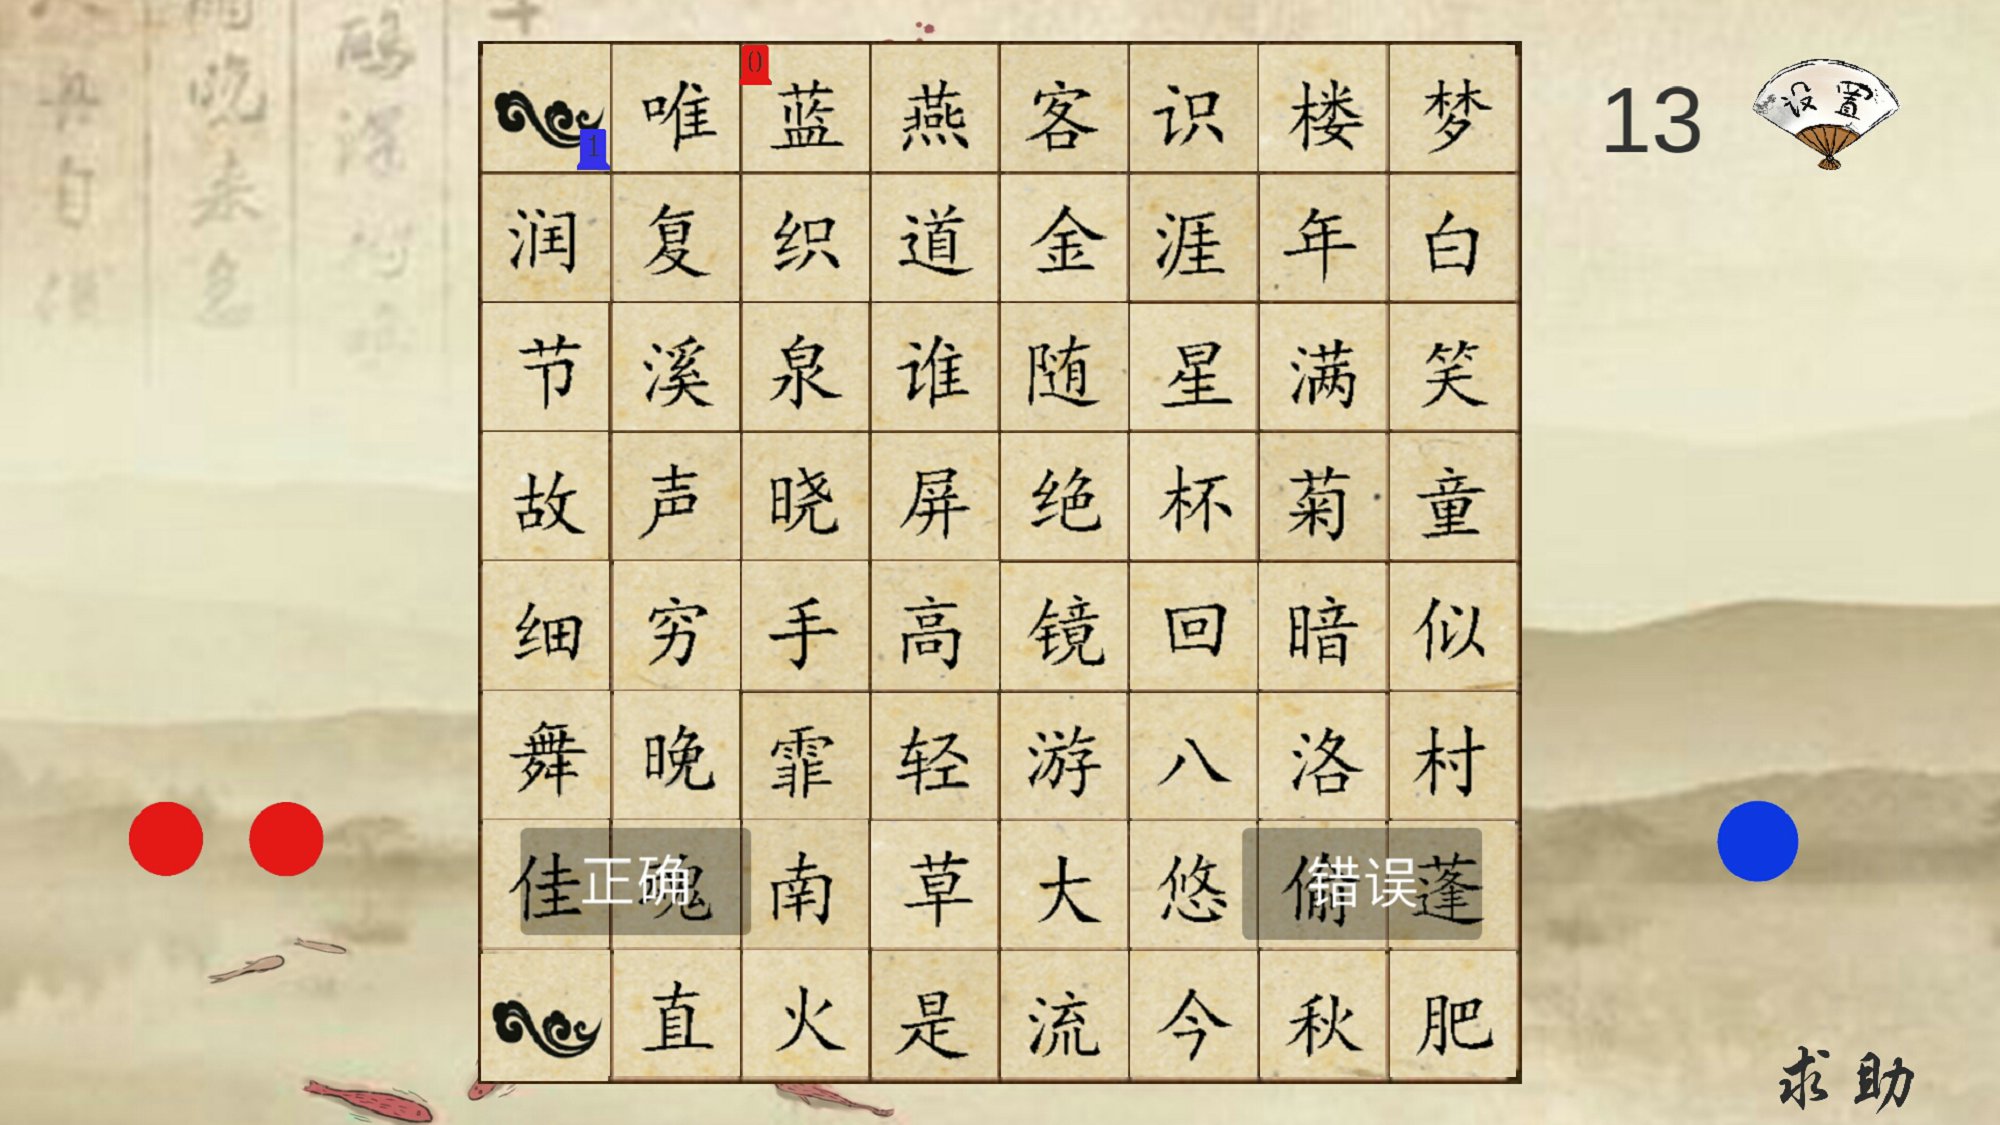 0
唯 蓝 燕 客 识 楼 梦
13
设置
1
润 复 织 道 金 涯 年 白
节 溪 泉 谁 随 星 满 笑
故 声 晓 屏 绝 杯 菊 童
细 穷 手 高 镜 回 暗 似
舞 晚 霏 轻 游 八 洛 村
佳 魂 南 草 大 悠 偷 蓬
正确
错误
直 火 是 流 今 秋 肥
求助